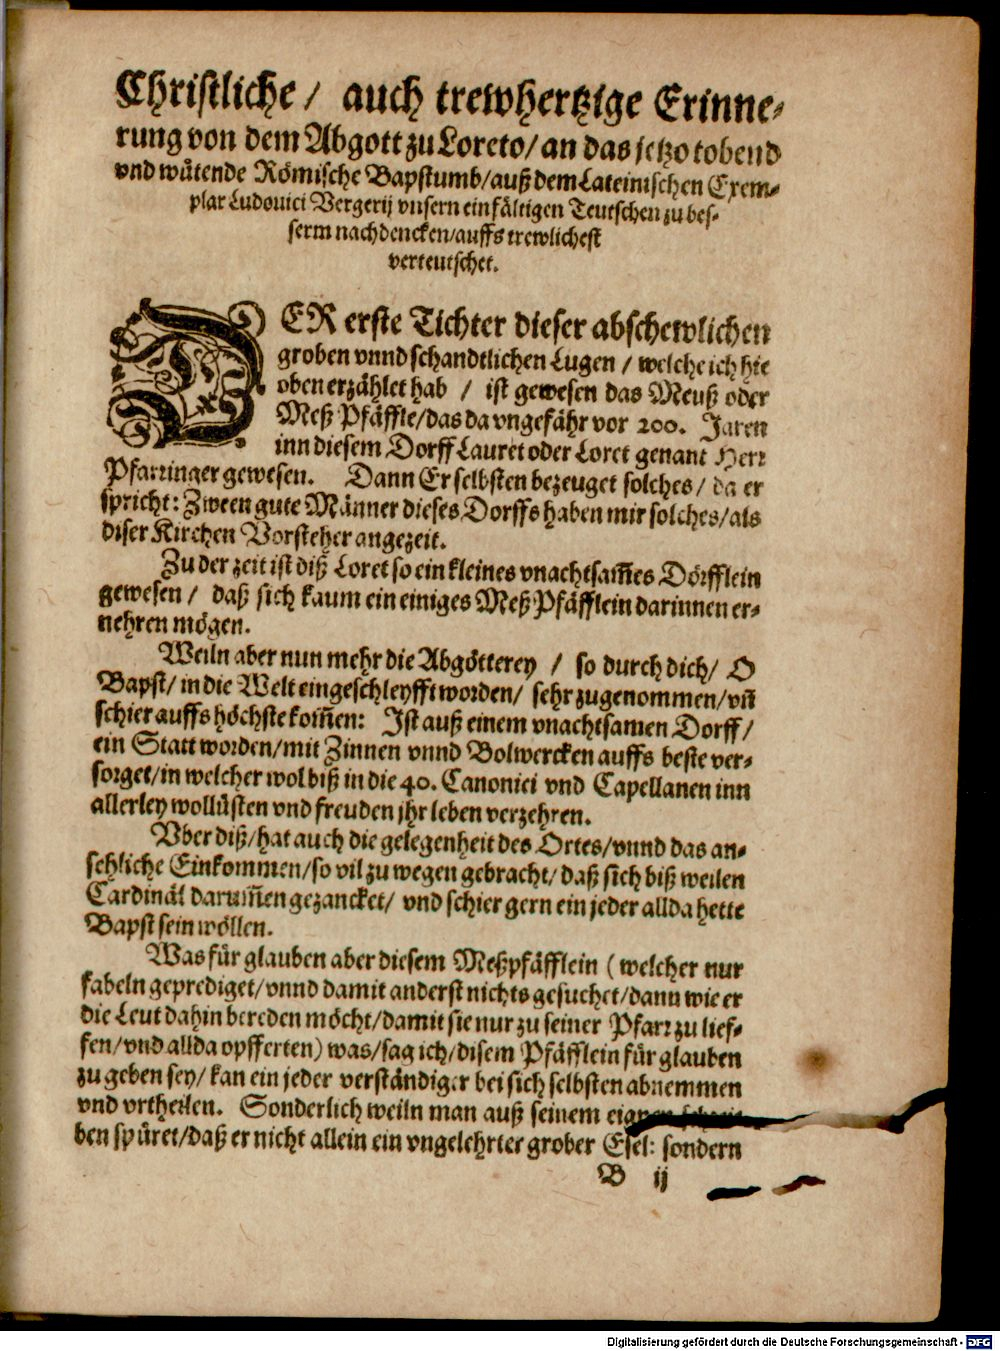 Christliche / auch trewhertzige Erinne-
rung von dem Abgott zu Loreto/ an das jetzo tobend
vnd wütende Römische Bapstumb/ auß dem Lateinischen Exem-
plar Ludouici Vergerij vnsern einfältigen Teutschen zu bes-
serm nachdencken/ auffs trewlichest
verteutschet.
DER erste Tichter dieser abschewlichen
groben vnnd schandtlichen Lugen / welche ich hie
oben erzählet hab / ist gewesen das Meuß oder
Meß Pfäffle/ das da vngefähr vor 200. Jaren
inn diesem Dorff Lauret oder Loret genant Herr
Pfarringer gewesen. Dann Er selbsten bezeuget solches/ da er
spricht: Zween gute Männer dieses Dorffs haben mir solches/ als
diser Kirchen Vorsteher angezeit.
Zu der zeit ist diß Loret so ein kleines vnachtsam̃es Dörfflein
gewesen / daß sich kaum ein einiges Meß Pfäfflein darinnen er-
nehren mögen.
Weiln aber nun mehr die Abgötterey / so durch dich/ O
Bapst/ in die Welt eingeschleyfft worden/ sehr zugenommen/ vñ
schier auffs höchste kom̃en: Ist auß einem vnachtsamen Dorff/
ein Statt worden/ mit Zinnen vnnd Bolwercken auffs beste ver-
sorget/ in welcher wol biß in die 40. Canonici vnd Capellanen inn
allerley wollüsten vnd freuden jhr leben verzehren.
Vber diß/ hat auch die gelegenheit des Ortes/ vnnd das an-
sehliche Einkommen/ so vil zu wegen gebracht/ daß sich biß weilen
Cardinäl darum̃en gezancket/ vnd schier gern ein jeder allda hette
Bapst sein wöllen.
Was für glauben aber diesem Meßpfäfflein ( welcher nur
fabeln geprediget/ vnnd damit anderst nichts gesuchet/ dann wie er
die Leut dahin bereden möcht/ damit sie nur zu seiner Pfarr zu lief-
fen/ vnd allda opfferten) was/ sag ich/ disem Pfäfflein für glauben
zu geben sey/ kan ein jeder verständiger bei sich selbsten abnemmen
vnd vrtheilen. Sonderlich weiln man auß seinem eignen schrei-
ben spüret/ daß er nicht allein ein vngelehrter grober Esel: sondern
B ij
Digitalisierung gefördert durch die Deutsche Forschungsgemeinschaft - DFG